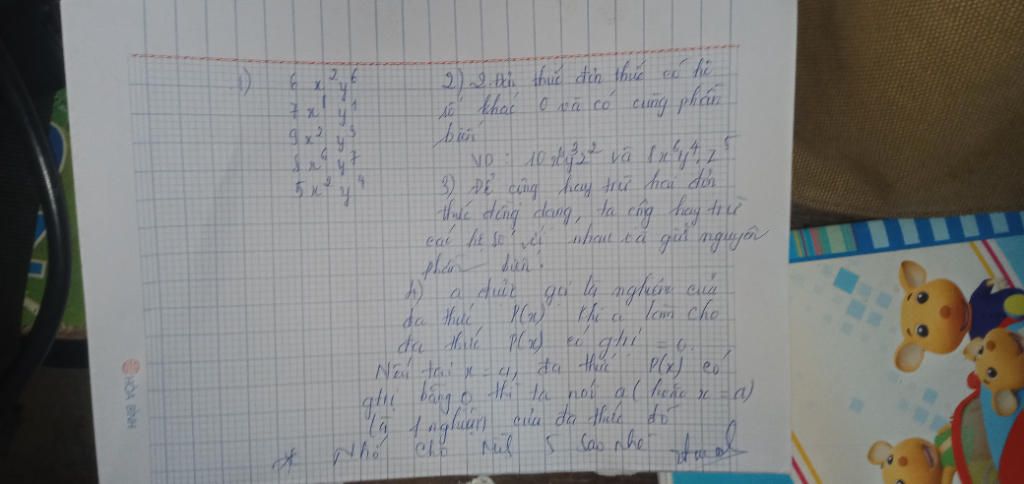 1) 6 x²y⁶
7 x¹ y¹
9 x² y³
8 x⁶ y⁷
5 x² y⁴
2) 2 đơn thức đơn thức có hệ
số khác 0 và có cùng phần
biến
VD: 10x⁴y³z² và 8x⁶y⁴.z⁵
3) Để cộng hay trừ hai đơn
thức đồng dạng, ta cộng hay trừ
các hệ số với nhau và giữ nguyên
phần biến.
4) a được gọi là nghiệm của
đa thức P(x) khi a làm cho
đa thức P(x) có ghí = 0.
Nếu tại x = a, đa thức P(x) có
ghí bằng 0 thì ta nói a (hoặc x = a)
là 1 nghiệm của đa thức đó
* Nhớ cho mik 5 sao nhé
HÒA BÌNH